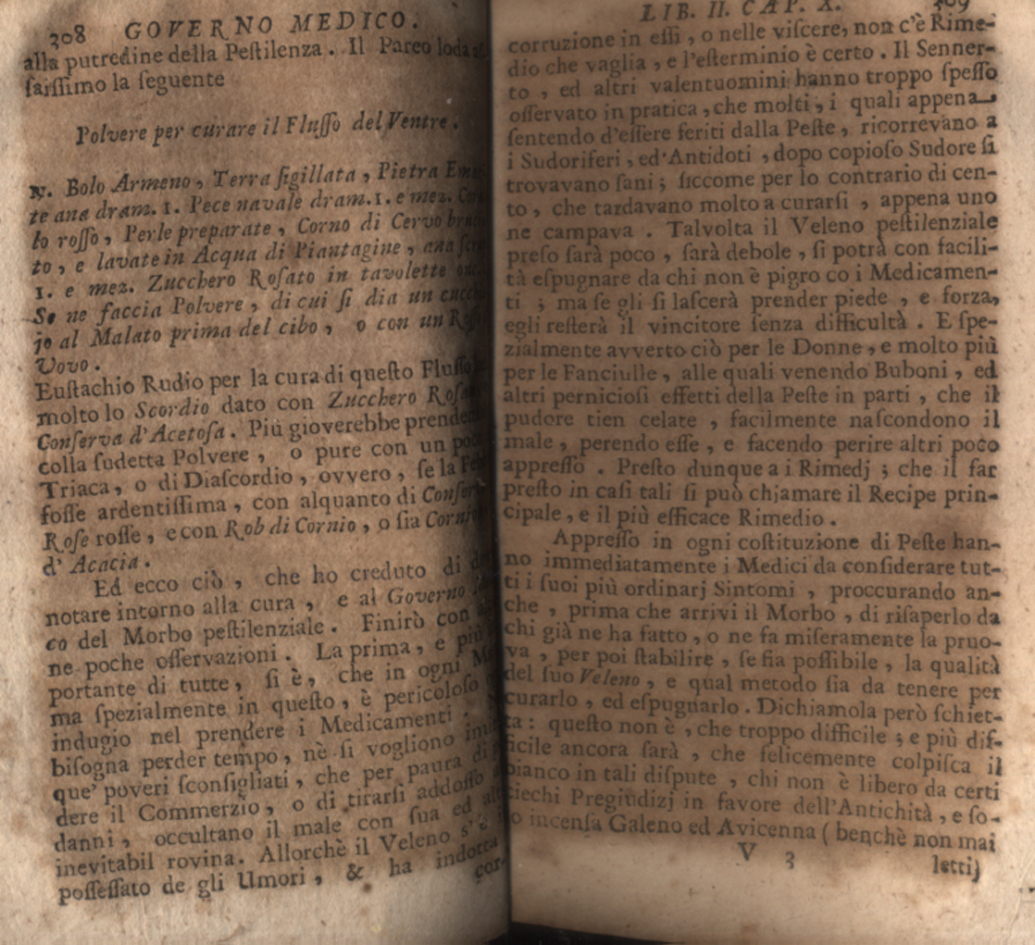 308 GOVERNO MEDICO.
alla putredine della Peſtilenza. Il Pareo loda
ſaiſſimo la ſeguente
Polvere per curare il Fluſſo del Ventre.
Bolo Armeno, Terra ſigillata, Pietra
te ana dram. 1. Pece navale dram. 1. e mez.
lo roſſo, Perle preparate, Corno di Cervo
to, e lavate in Acqua di Piantagine, ana
1. e mez. Zucchero Roſato in tavolette
Se ne faccia Polvere, di cui ſi dia un
jo al Malato prima del cibo, o con un
Vovo.
Euſtachio Rudio per la cura di queſto Fluſſo
molto lo Scordio dato con Zucchero
Conſerva d'Acetoſa. Più gioverebbe
colla ſudetta Polvere, o pure con un
Triaca, o di Diaſcordio, ovvero, ſe la
foſſe ardentiſſima, con alquanto di
Roſe roſſe, e con Rob di Cornio, o ſia
d'Acacia.
Ed ecco ciò, che ho creduto di
notare intorno alla cura, e al Governo
co del Morbo peſtilenziale. Finirò con
ne poche oſſervazioni. La prima, e più
portante di tutte, ſi è, che in ogni
ma ſpezialmente in queſto, è pericoloſo
indugio nel prendere i Medicamenti.
biſogna perder tempo, nè ſi vogliono
que' poveri ſconſigliati, che per paura di
dere il Commerzio, o di tirarſi addoſſo
danni, occultano il male con ſua ed
inevitabil rovina. Allorchè il Veleno s'è
poſſeſſato de gli Umori, & ha indotta
cor-
LIB. II. CAP. X. 309
corruzione in eſſi, o nelle viſcere, non c'è Rime-
dio che vaglia, e l'eſterminio è certo. Il Senner-
to, ed altri valentuomini hanno troppo ſpeſſo
oſſervato in pratica, che molti, i quali appena
ſentendo d'eſſere feriti dalla Peſte, ricorrevano a
i Sudoriferi, ed Antidoti, dopo copioſo Sudore ſi
trovavano ſani; ſiccome per lo contrario di cen-
to, che tardavano molto a curarſi, appena uno
ne campava. Talvolta il Veleno peſtilenziale
preſo ſarà poco, ſarà debole, ſi potrà con facili-
tà eſpugnare da chi non è pigro co i Medicamen-
ti; ma ſe gli ſi laſcerà prender piede, e forza,
egli reſterà il vincitore ſenza difficultà. E ſpe-
zialmente avverto ciò per le Donne, e molto più
per le Fanciulle, alle quali venendo Buboni, ed
altri pernicioſi effetti della Peſte in parti, che il
pudore tien celate, facilmente naſcondono il
male, perendo eſſe, e facendo perire altri poco
appreſſo. Preſto dunque a i Rimedj; che il far
preſto in caſi tali ſi può chiamare il Recipe prin-
cipale, e il più efficace Rimedio.
Appreſſo in ogni coſtituzione di Peſte han-
no immediatamente i Medici da conſiderare tut-
ti i ſuoi più ordinarj Sintomi, proccurando an-
che, prima che arrivi il Morbo, di riſaperlo da
chi già ne ha fatto, o ne fa miſeramente la pruo-
va, per poi ſtabilire, ſe ſia poſſibile, la qualità
del ſuo Veleno, e qual metodo ſia da tenere per
curarlo, ed eſpugnarlo. Dichiamola però ſchiet-
ta: queſto non è, che troppo difficile; e più dif-
ficile ancora ſarà, che felicemente colpiſca il
bianco in tali diſpute, chi non è libero da certi
ciechi Pregiudizj in favore dell'Antichità, e ſo-
lo incenſa Galeno ed Avicenna (benchè non mai
V 3 letti)